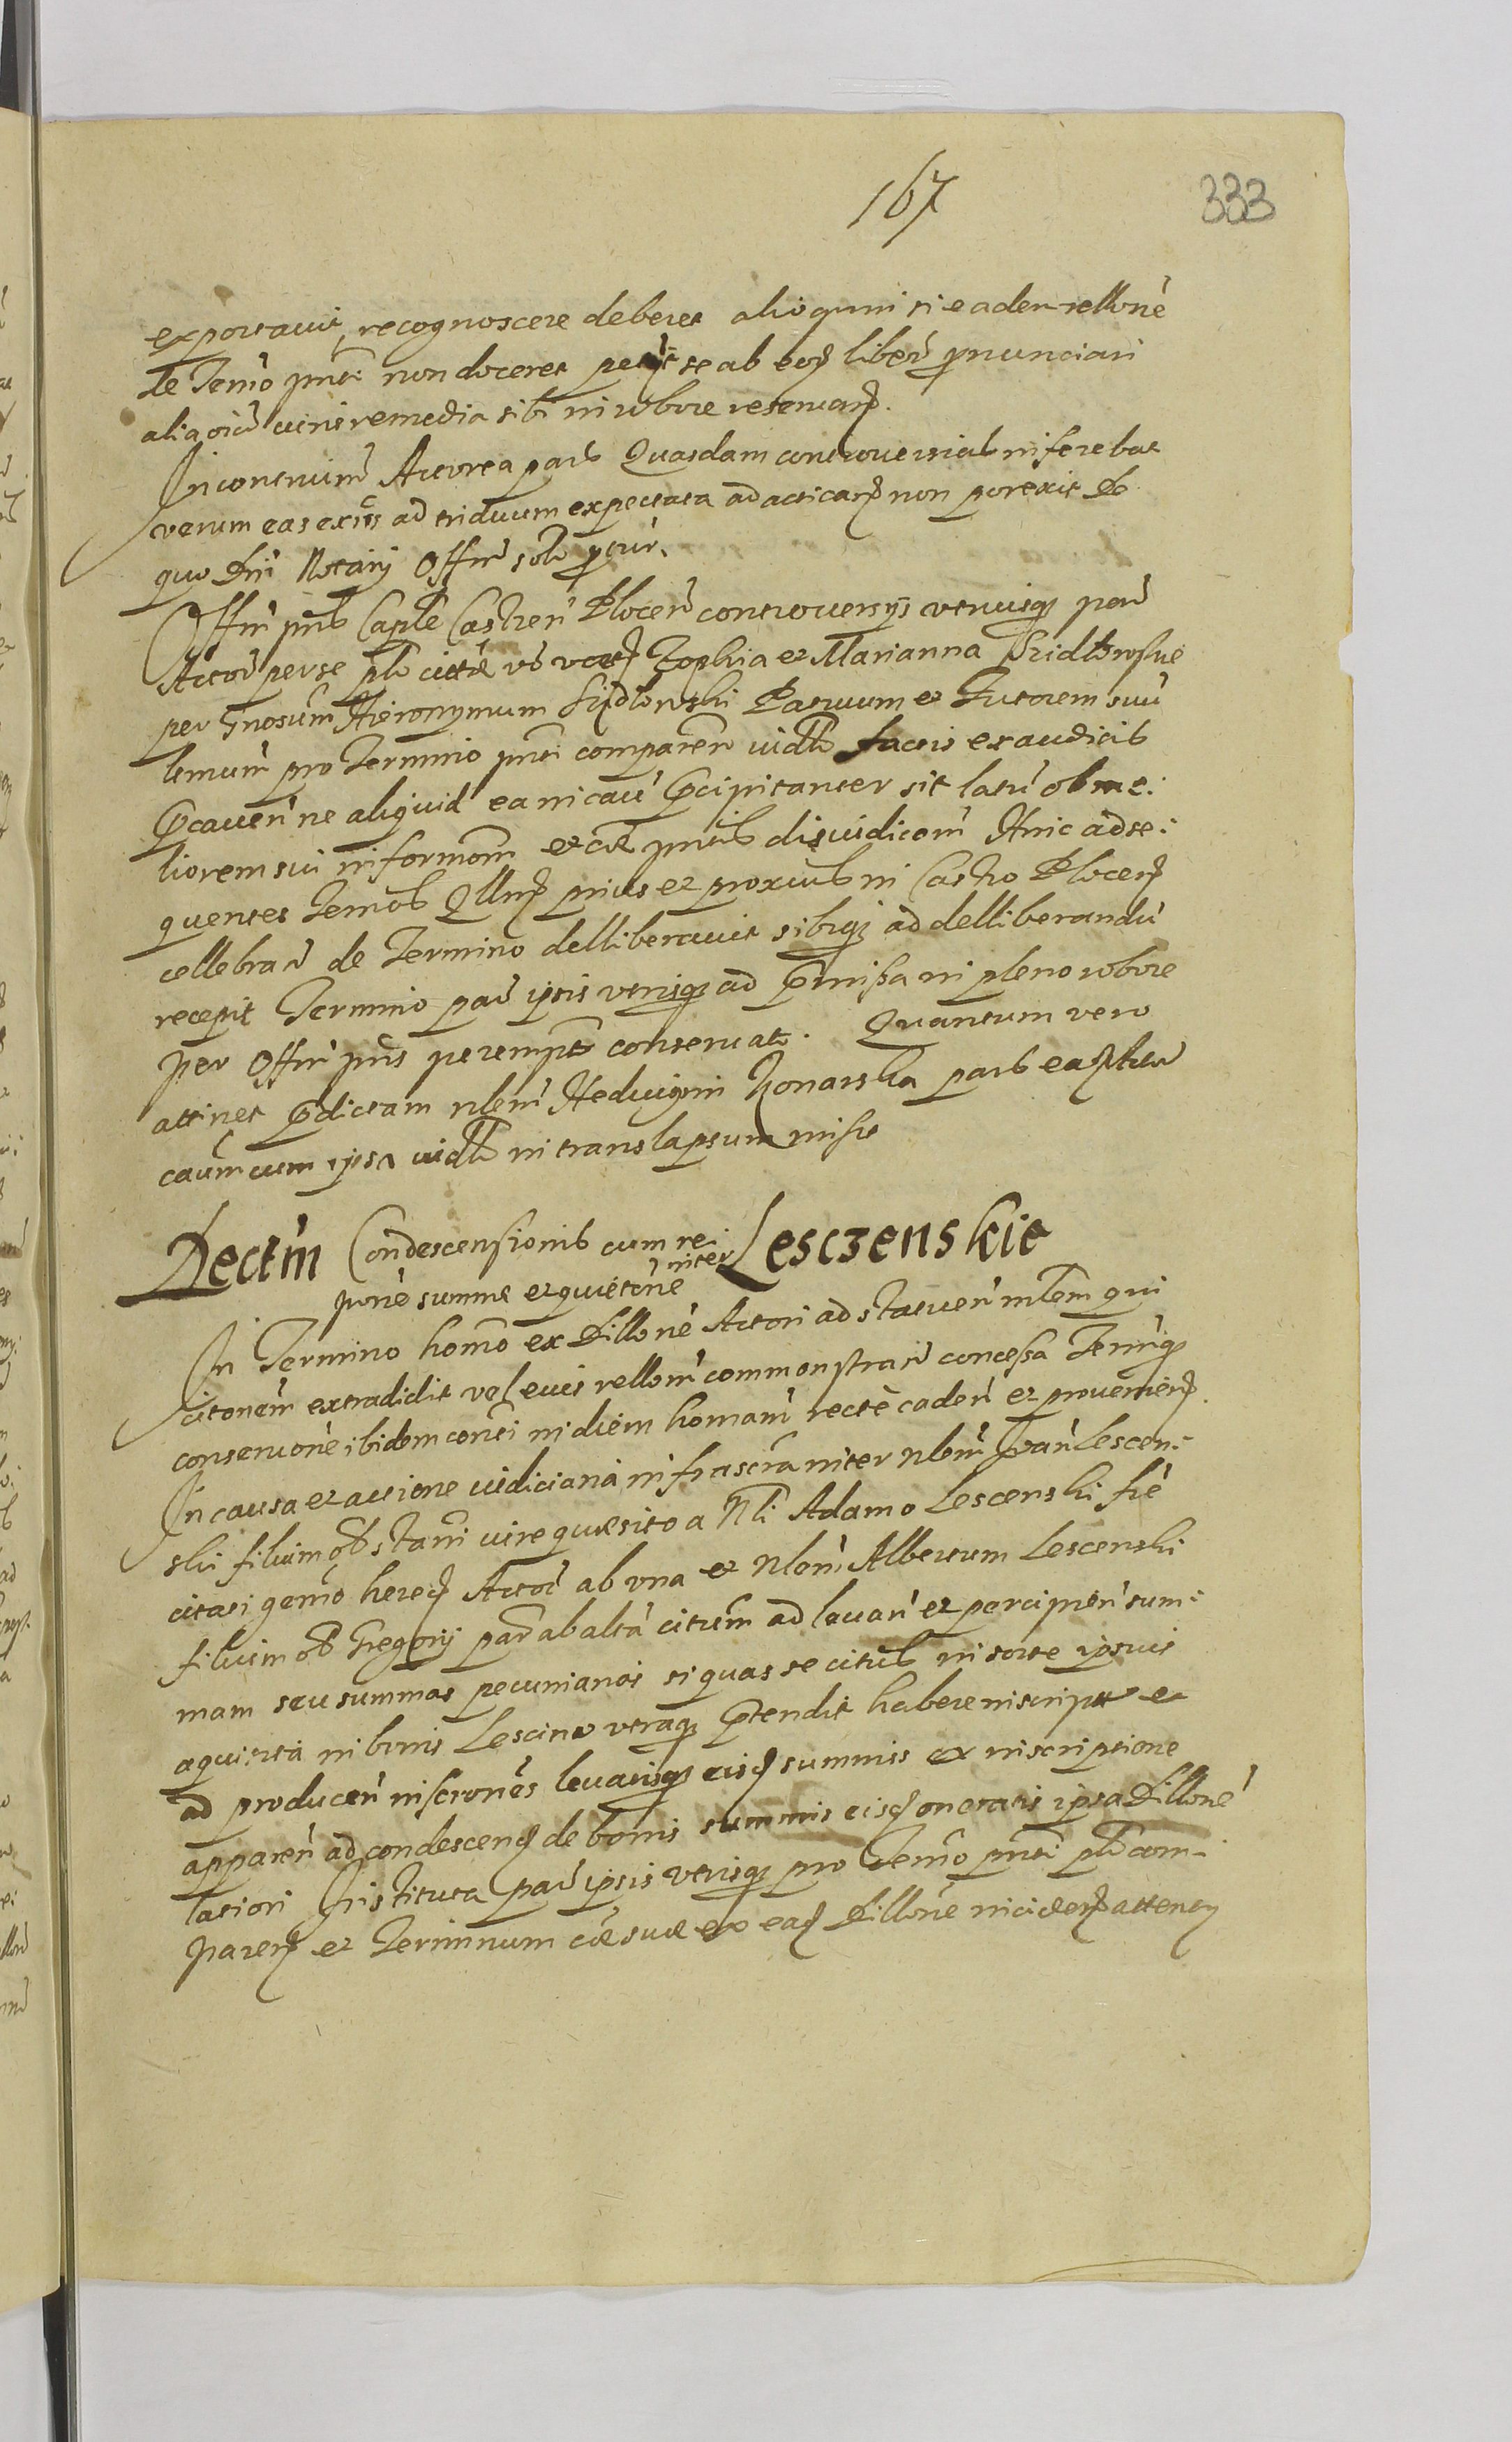 167
333
exportavit, recognoscere deberet alioquin si eadem rellone
de Temo pnti non doceret petyt se ab eod liber pronunciari
alia oia iuris remedia sibi in robore reservand.
In contrarium Actorea pars Quasdam controversias inferebat
verum eas ex ad triduum expectata ad acticand non porexit De
quo Dni Notarij Offm
Offm pns Caple Castren Plocen controversijs utriusq par
Actor per se Zophia et Marianna Sridlowskie
per Gnosum Hieronymum Sridlowski Patruum et Tutorem suu
lemum pro Termino pnti comparen uidlt factis exaudicis
Pcauen ne aliquid ea in cau Pcipitanter sit latu ob me:
liorem sui informom et cae pntis disiudicom Hinc ad se:
quentes Temos Qllnr prius et proxius in Castro Plocen
cellebran de Termino delliberavit sibiq ad delliberandu
recepit Termino par ipsis utrisq ad Pmissa in pleno robore
per Offm pns perempt conservato. Quantum vero
attinet Pdictam nlem Hedvigim Konarska pars
caum cum ipsa uidlt in translapsum misit
Dectm Condescensionis cum re: inter Lesczenskie
pone summe et quietone
In Termino homo ex Dillone Actori ad statuen mlem qui
citonem extradidit vel eius rellom commonstran concessa Temiq
conservone ibidem conti in diem homam recte caden et provenien.
In causa et actione iudiciaria infrascra inter nlem Joan Lescen:
ski filium ob Stani iure quaesito a Nli Adamo Lescenski fre
citati gemo hered Actor ab una et Nlem Albertum Lescenski
filium ob Gregorij par ab alta citum ad levan et percipien sum:
mam seu summas pecuniarias si quas se citus in sorte ipsius
aquisita in bonis Lescino utraq Ptendit habere inscript et
ad producen inscrones levatisq eisd summis ex inscriptione
apparen ad condescend de bonis summis eisd oneratis ipsa Dillone
latiori Instituta par ipsis utrisq pro Temo pnti com:
paren et Terminum cae suae ex ead Dillone inciden atten